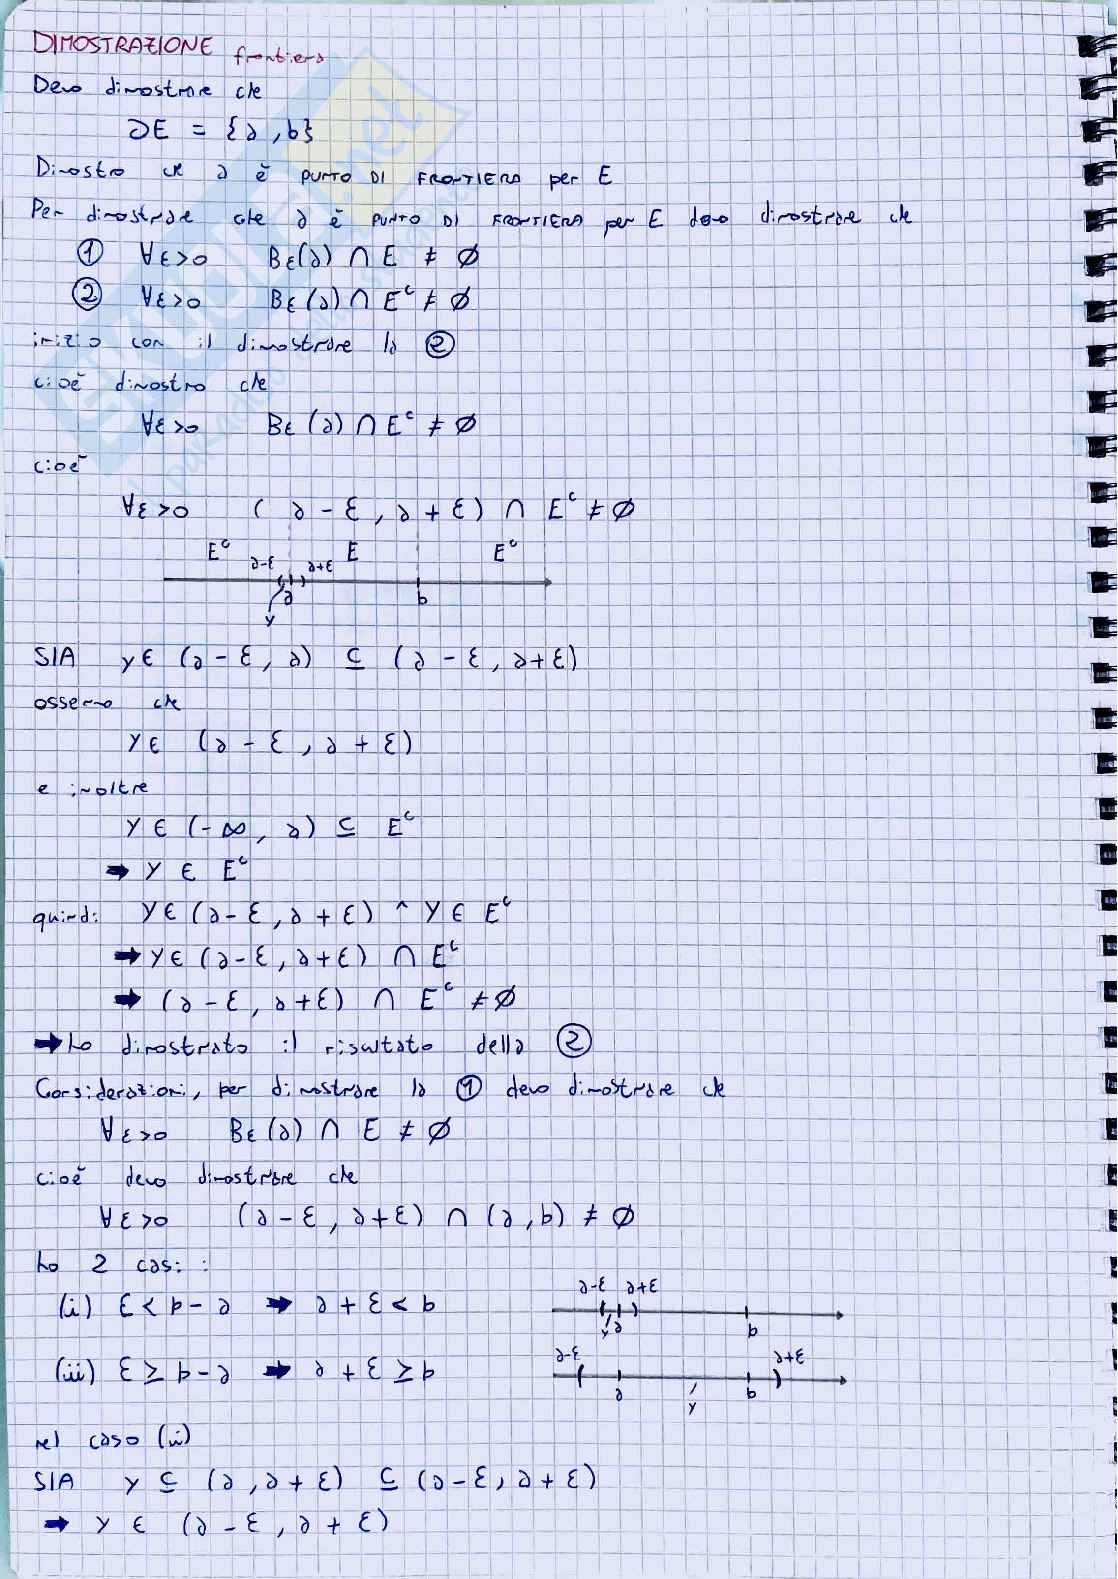 DIMOSTRAZIONE frontiera
Devo dimostrare che
∂E = {a, b}
Dimostro che a è PUNTO DI FRONTIERA per E
Per dimostrare che a è PUNTO DI FRONTIERA per E devo dimostrare che
① ∀ε>0 Bε(a) ∩ E ≠ ∅
② ∀ε>0 Bε(a) ∩ Eᶜ ≠ ∅
inizio con il dimostrare la ②
cioè dimostro che
∀ε>0 Bε(a) ∩ Eᶜ ≠ ∅
cioè
∀ε>0 (a - ε, a + ε) ∩ Eᶜ ≠ ∅
Eᶜ a-ε a+ε E Eᶜ
a b
y
SIA y ∈ (a - ε, a) ⊆ (a - ε, a+ε)
osservo che
y ∈ (a - ε, a + ε)
e inoltre
y ∈ (-∞, a) ⊆ Eᶜ
➡ y ∈ Eᶜ
quindi y ∈ (a - ε, a + ε) ^ y ∈ Eᶜ
➡ y ∈ (a - ε, a+ε) ∩ Eᶜ
➡ (a - ε, a+ε) ∩ Eᶜ ≠ ∅
➡ ho dimostrato il risultato della ②
Considerazioni, per dimostrare la ① devo dimostrare che
∀ε>0 Bε(a) ∩ E ≠ ∅
cioè devo dimostrare che
∀ε>0 (a - ε, a+ε) ∩ (a, b) ≠ ∅
ho 2 casi:
(i) ε < b - a ➡ a + ε < b
a-ε a+ε
y a b
(ii) ε ≥ b - a ➡ a + ε ≥ b
a-ε a+ε
a y b
nel caso (i)
SIA y ⊆ (a, a + ε) ⊆ (a - ε, a + ε)
➡ y ∈ (a - ε, a + ε)